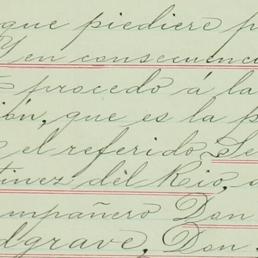 que piediere p
Y en consecuenci
procedo á la
ión, que es la p
el referido Se
tinez del Rio, a
mpañero Don
dgrave, Don